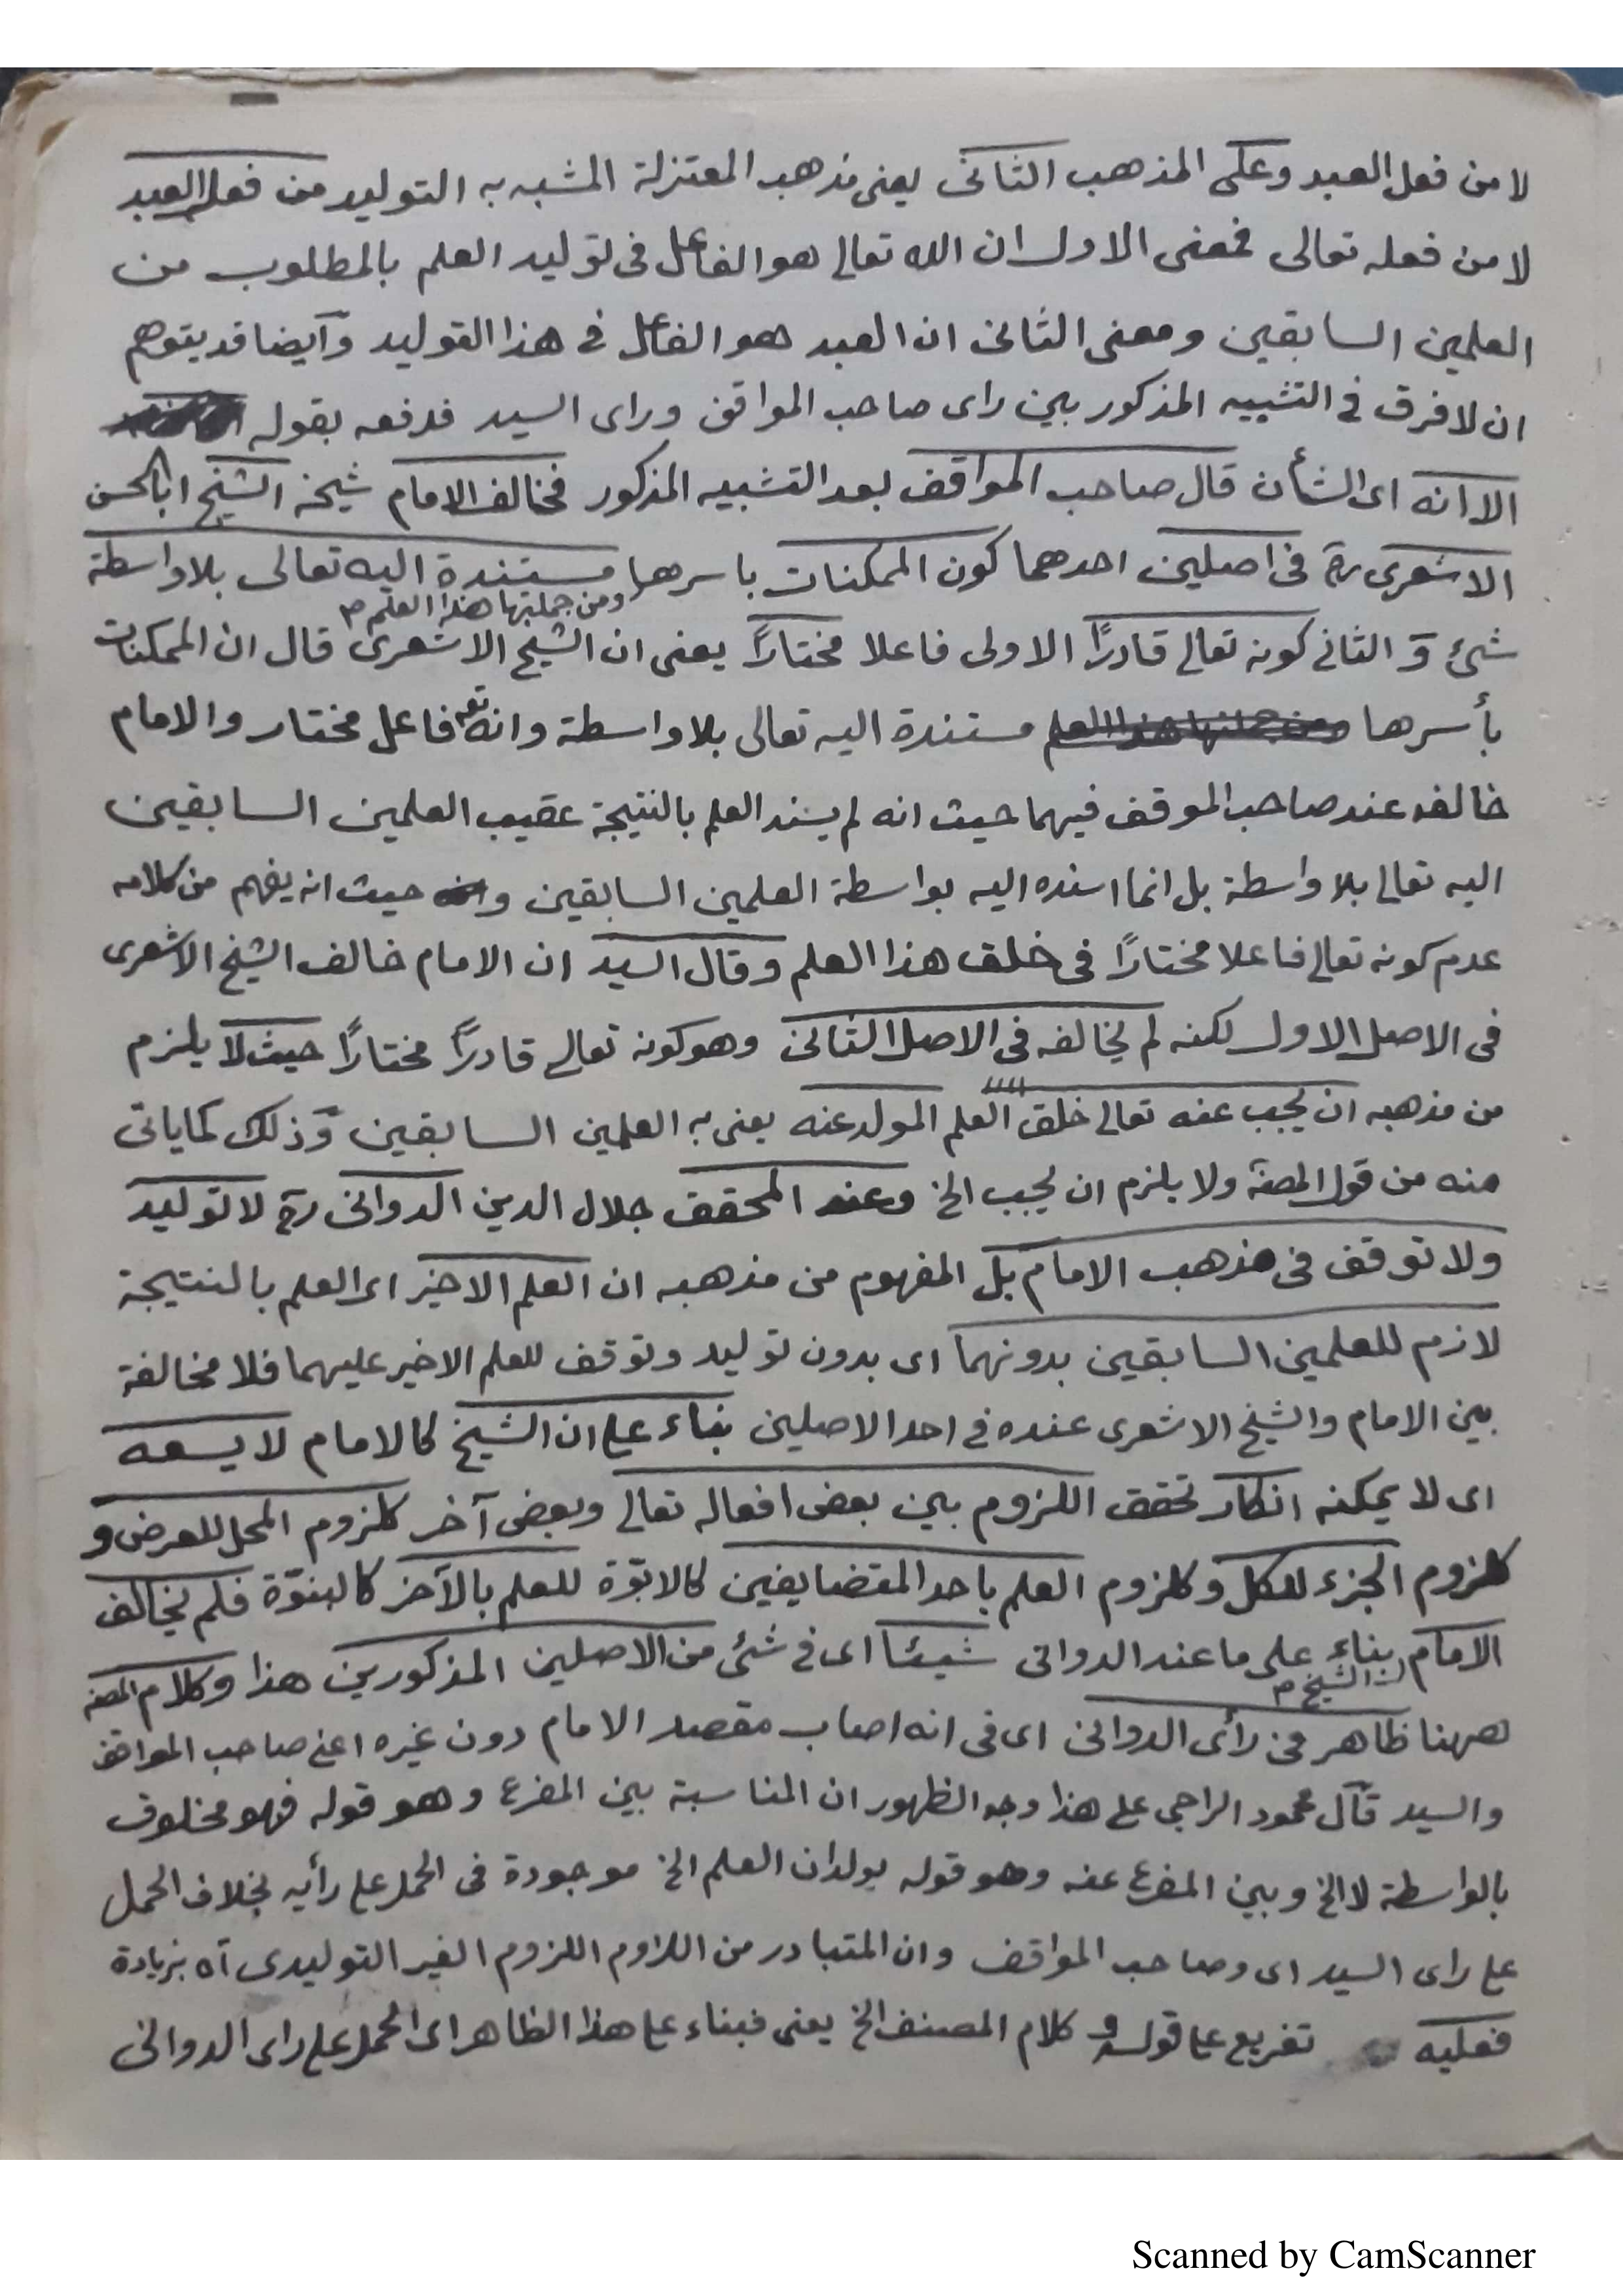 لا من فعل العبد وعلى المذهب الثانى يعنى مذهب المعتزلة المشبه به التوليد من فعل العبد
لا من فعله تعالى فمعنى الاول ان الله تعالى هو الفاعل فى توليد العلم بالمطلوب من
العلمين السابقين ومعنى الثانى ان العبد هو الفاعل فى هذا التوليد وايضا قد يتوهم
ان لا فرق فى التشبيه المذكور بين راى صاحب المواقف وراى السيد فدفعه بقوله
الا انه اى الشأن قال صاحب المواقف بعد التشبيه المذكور فخالف الامام شيخه الشيخ ابا الحسن
الاشعرى رح فى اصلين احدهما كون الممكنات باسرها مستندة اليه تعالى بلا واسطة
ومن جملتها هذا العلم م
شئ و الثانى كونه تعالى قادرًا الاولى فاعلا مختارًا يعنى ان الشيخ الاشعرى قال ان الممكنات
بأسرها مستندة اليه تعالى بلا واسطة وانه تع فاعل مختار والامام
خالفه عند صاحب الموقف فيهما حيث انه لم يسند العلم بالنتيجة عقيب العلمين السابقين
اليه تعالى بلا واسطة بل انما اسنده اليه بواسطة العلمين السابقين و حيث انه يفهم من كلامه
عدم كونه تعالى فاعلا مختارًا فى خلق هذا العلم وقال السيد ان الامام خالف الشيخ الاشعرى
فى الاصل الاول لكنه لم يخالفه فى الاصل الثانى وهو كونه تعالى قادرًا مختارًا حيث لا يلزم
من مذهبه ان يجب عنه تعالى خلق العلم المولد عنه يعنى به العلمين السابقين وذلك كما ياتى
منه من قول المصنف ولا يلزم ان يجب الخ وعند المحقق جلال الدين الدوانى رح لا توليد
ولا توقف فى مذهب الامام بل المفهوم من مذهبه ان العلم الاخير اى العلم بالنتيجة
لازم للعلمين السابقين بدونهما اى بدون توليد وتوقف للعلم الاخير عليهما فلا مخالفة
بين الامام والشيخ الاشعرى عنده فى احد الاصلين بناء على ان الشيخ كالامام لا يسعه
اى لا يمكنه انكار تحقق اللزوم بين بعض افعاله تعالى وبعض آخر كلزوم المحل للعرض و
كلزوم الجزء للكل وكلزوم العلم باحد المتضايفين كالابوّة للعلم بالآخر كالبنوّة فلم يخالف
الامام بناء على ما عند الدوانى شيئا اى فى شئ من الاصلين المذكورين هذا وكلام المصنف
الشيخ م
ههنا ظاهر فى رأى الدوانى اى فى انه اصاب مقصد الامام دون غيره اعنى صاحب المواقف
والسيد قال محمود الراجى على هذا وجه الظهور ان المناسبة بين المفرع وهو قوله فهو مخلوق
بالواسطة لا الخ وبين المفرع عنه وهو قوله يولدان العلم الخ موجودة فى الحمل على رأيه بخلاف الحمل
على راى السيد اى وصاحب المواقف وان المتبادر من اللازم اللزوم الغير التوليدى اه بزيادة
فعليه تفريع على قوله و كلام المصنف الخ يعنى فبناء على هذا الظاهر اى الحمل على راى الدوانى
Scanned by CamScanner